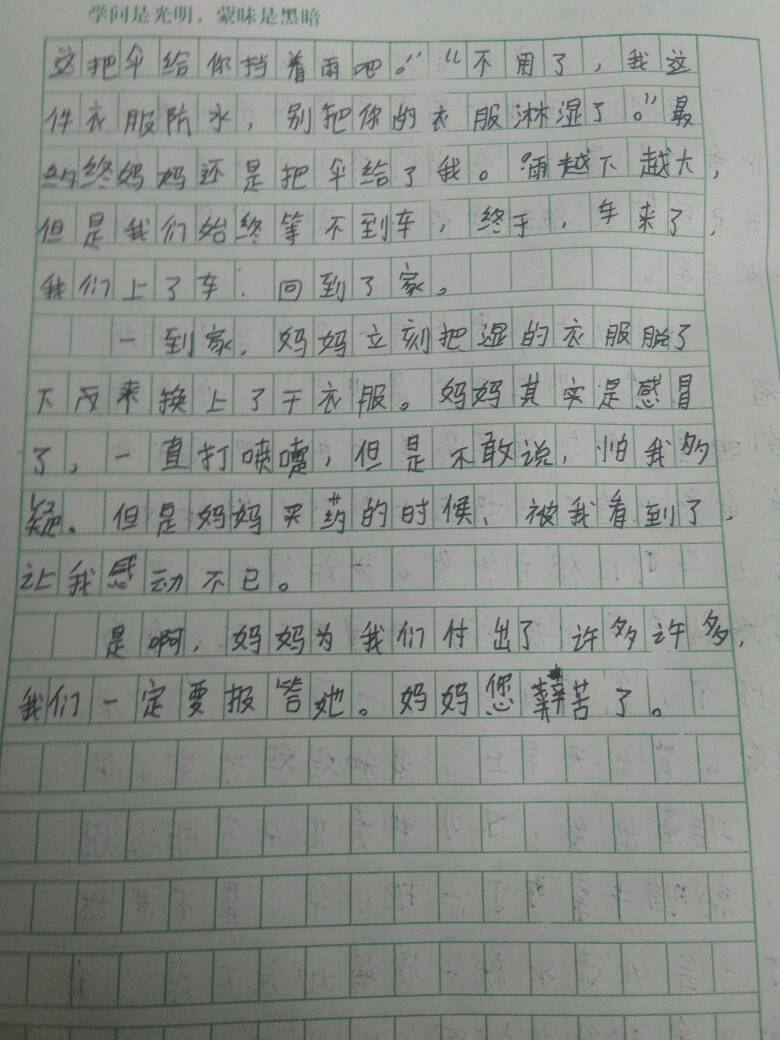 学问是光明，蒙昧是黑暗
这把伞给你挡着雨吧。”“不用了，我这
件衣服防水，别把你的衣服淋湿了。”最
终妈妈还是把伞给了我。雨越下越大，
但是我们始终等不到车，终于，车来了，
我们上了车．回到了家。
一到家，妈妈立刻把湿的衣服脱了
下来换上了干衣服。妈妈其实是感冒
了，一直打喷嚏，但是不敢说，怕我多
疑。但是妈妈买药的时候、被我看到了，
让我感动不已。
是啊，妈妈为我们付出了许多许多，
我们一定要报答她。妈妈您辛苦了。